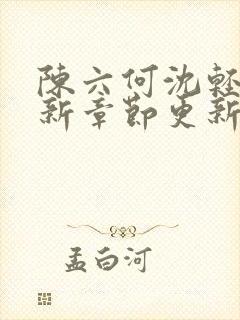 陳六何沈輕
新章節更新
孟白河